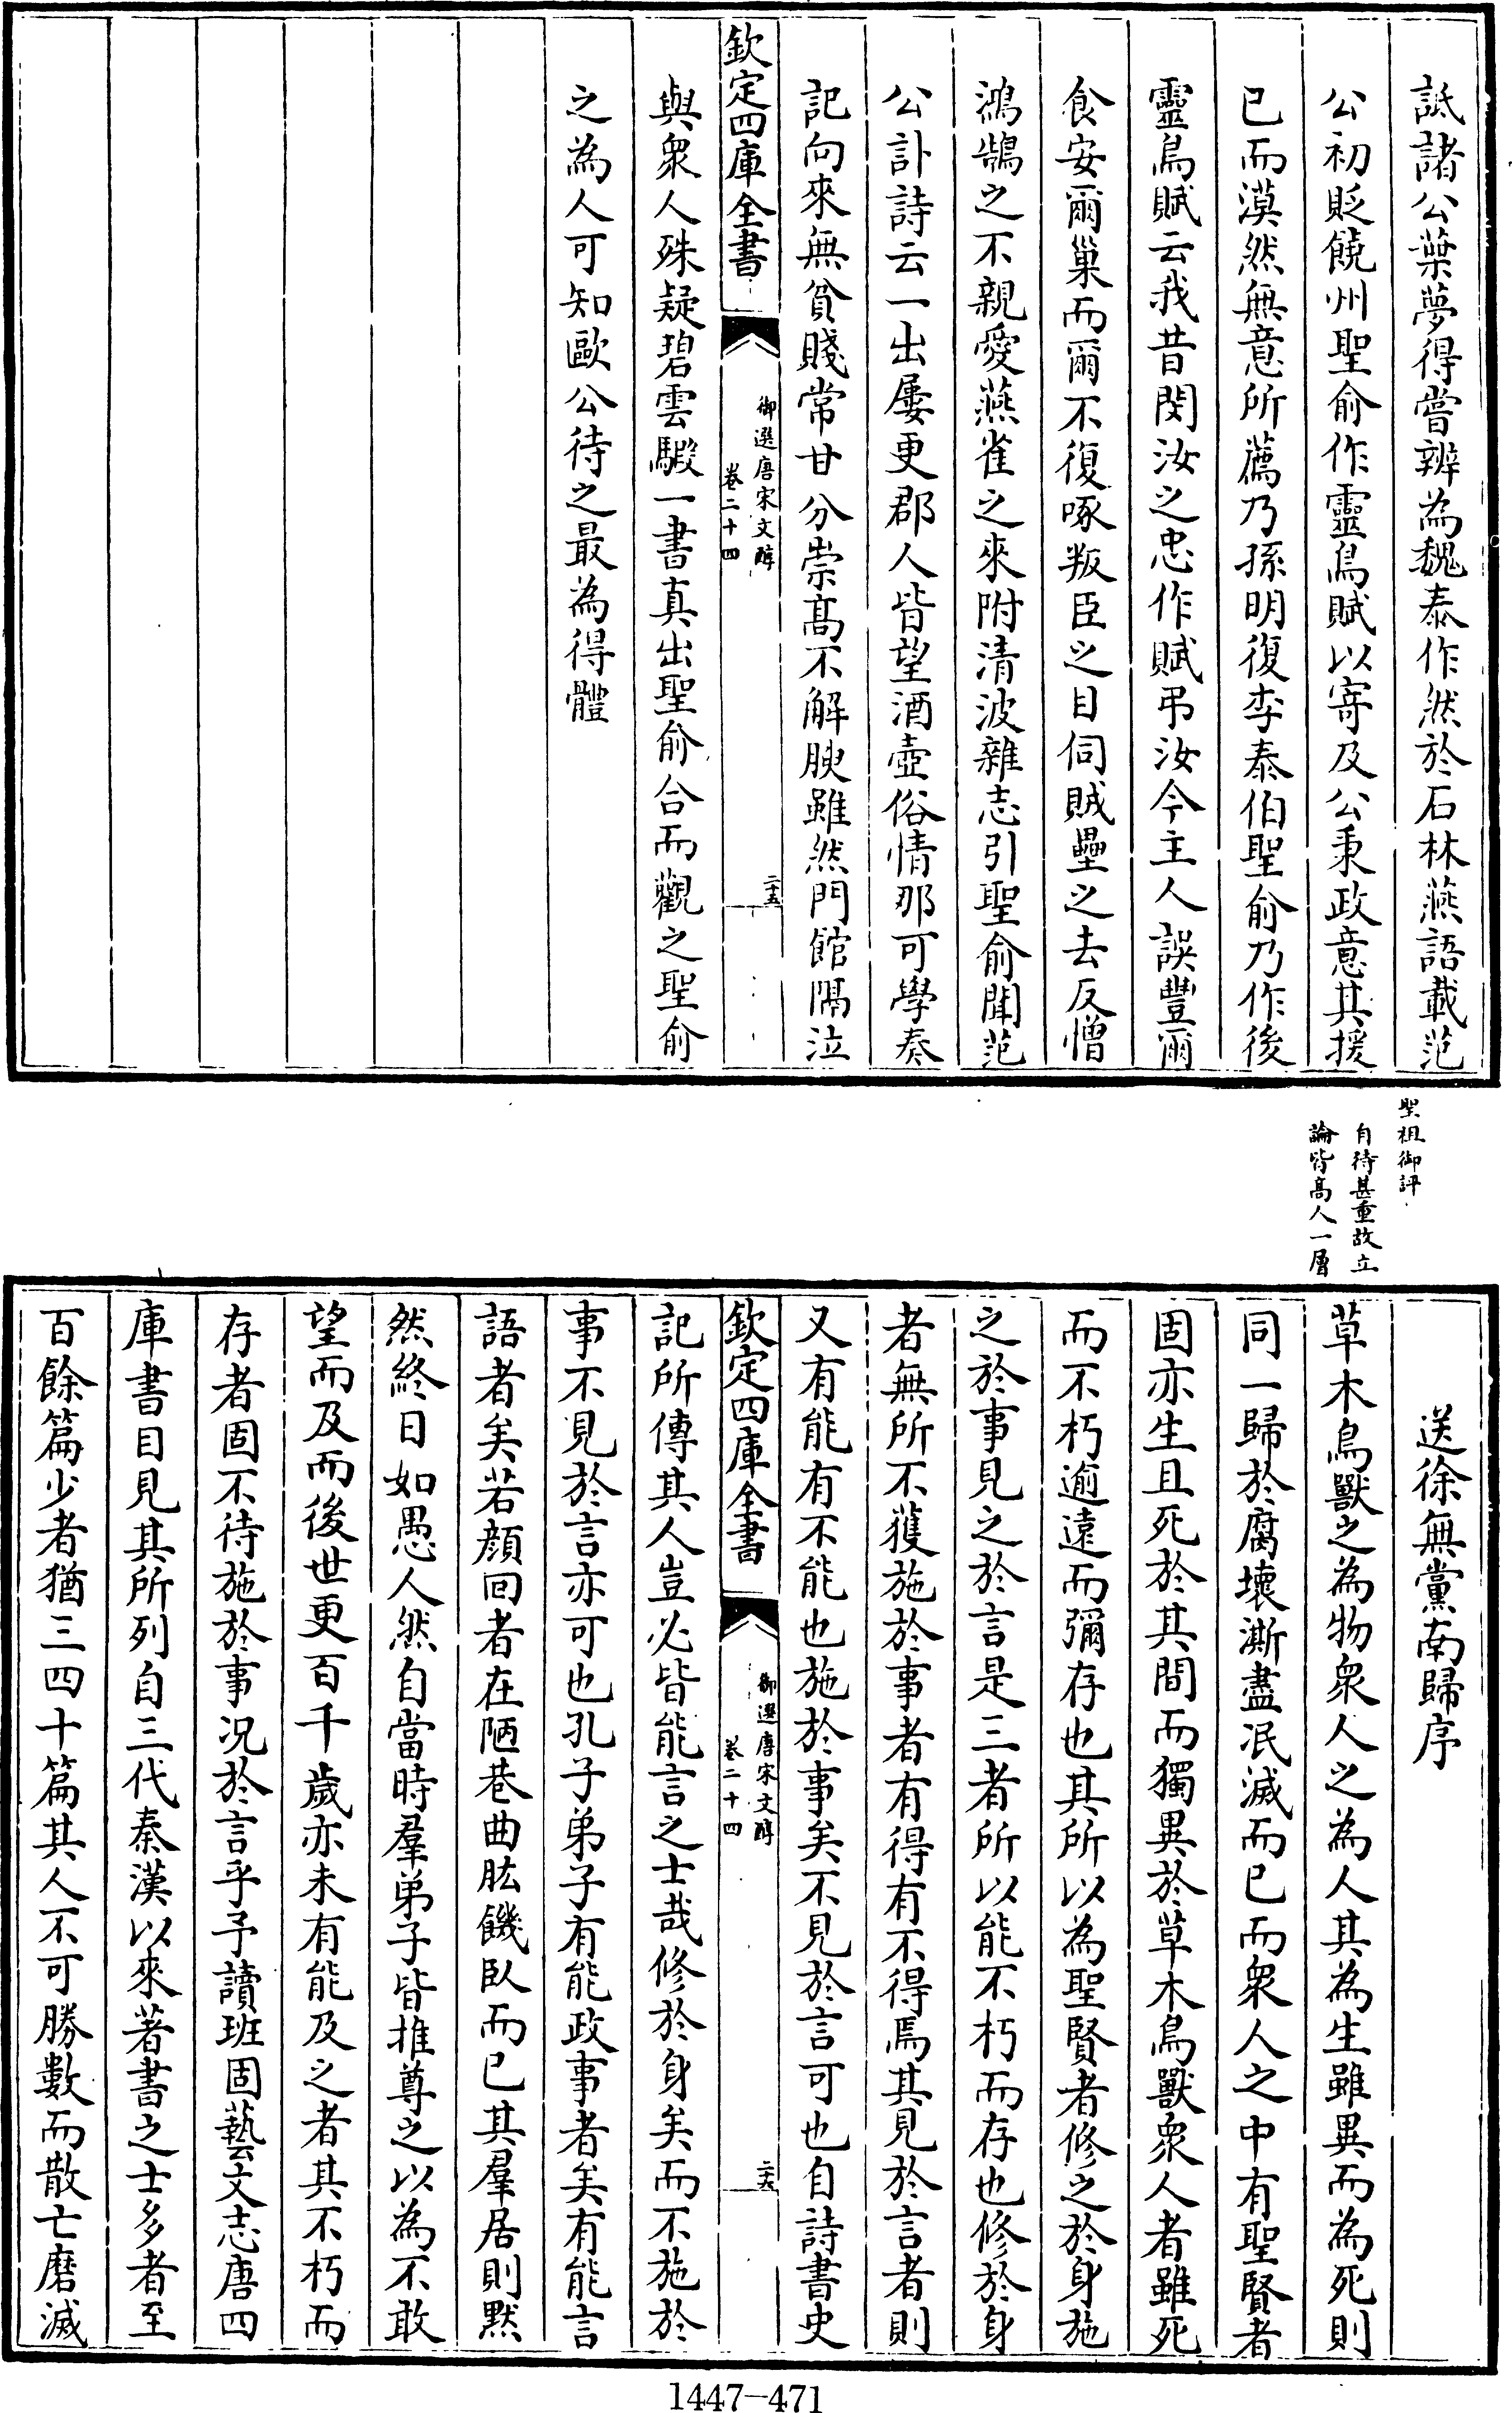 詆諸公葉夢得嘗辨為魏泰作然於石林燕語載范
公初貶饒州聖俞作靈烏賦以寄及公秉政意其援
已而漠然無意所薦乃孫明復李泰伯聖俞乃作後
靈烏賦云我昔閔汝之忠作賦弔汝今主人誤豐爾
食安爾巢而爾不復啄叛臣之目伺賊壘之去反憎
鴻鵠之不親愛燕雀之來附清波雜志引聖俞聞范
公訃詩云一出屢更郡人皆望酒壺俗情那可學奏
記向來無貧賤常甘分崇髙不解腴雖然門館隔泣
欽定四庫全書
御選唐宋文醇
卷二十四
二十五
與衆人殊疑碧雲騢一書真出聖俞合而觀之聖俞
之為人可知歐公待之最為得體
聖祖御評
自待甚重故立
論皆高人一層
送徐無黨南歸序
草木鳥獸之為物衆人之為人其為生雖異而為死則
同一歸於腐壞澌盡泯滅而已而衆人之中有聖賢者
固亦生且死於其間而獨異於草木鳥獸衆人者雖死
而不朽逾遠而彌存也其所以為聖賢者修之於身施
之於事見之於言是三者所以能不朽而存也修於身
者無所不獲施於事者有得有不得焉其見於言者則
又有能有不能也施於事矣不見於言可也自詩書史
欽定四庫全書
御選唐宋文醇
卷二十四
二十六
記所傳其人豈必皆能言之士哉修於身矣而不施於
事不見於言亦可也孔子弟子有能政事者矣有能言
語者矣若顔回者在陋巷曲肱饑臥而已其羣居則默
然終日如愚人然自當時羣弟子皆推尊之以為不敢
望而及而後世更百千歲亦未有能及之者其不朽而
存者固不待施於事况於言乎予讀班固藝文志唐四
庫書目見其所列自三代秦漢以來著書之士多者至
百餘篇少者猶三四十篇其人不可勝數而散亡磨滅
1447-471